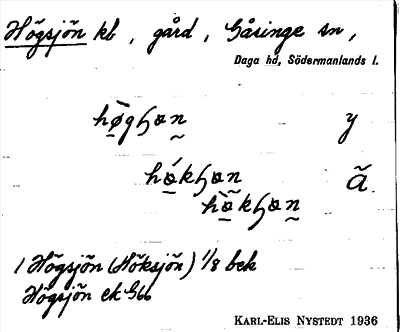 Högsjön kb, gård, Gåsinge sn,
Daga hd, Södermanlands l.
hø̀gꜧơn y
hǿkꜧơn ã
hø̀kꜧơn
1 Högsjön (Höksjön) 1/8 bek
Högsjön ek G66
KARL-ELIS NYSTEDT 1936